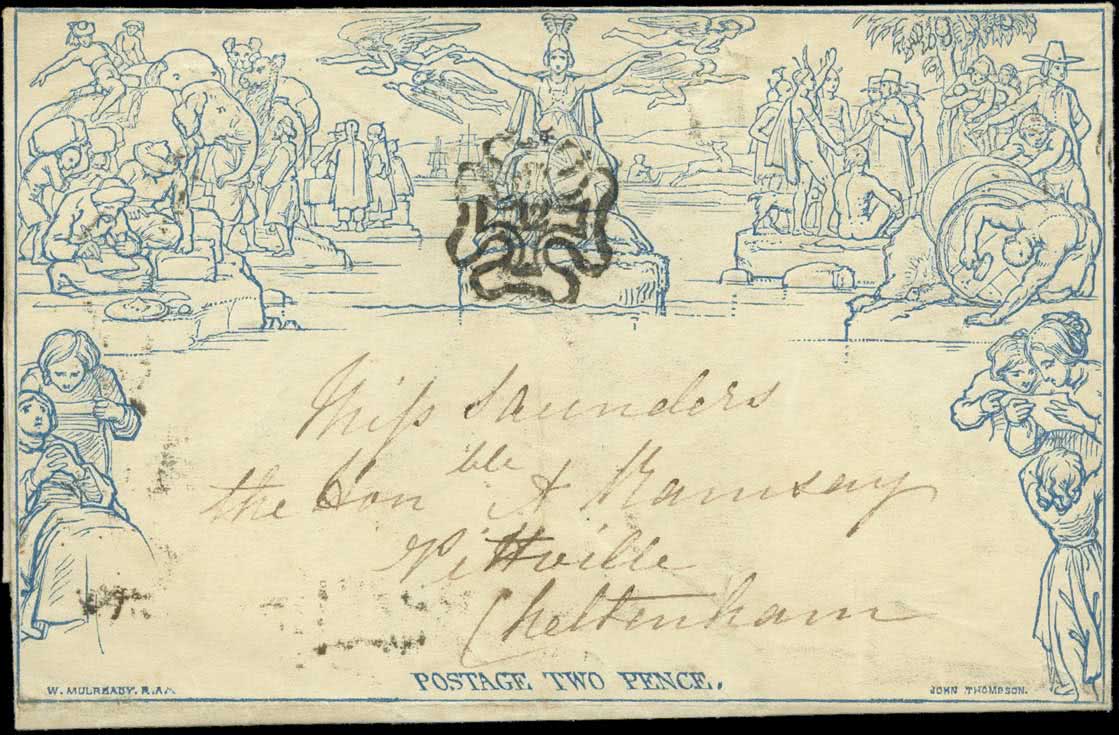 12
Miss Saunders
the Honble A Ramsay
Pittville
Cheltenham
POSTAGE TWO PENCE.
W. MULREADY. R.A.
JOHN THOMPSON.